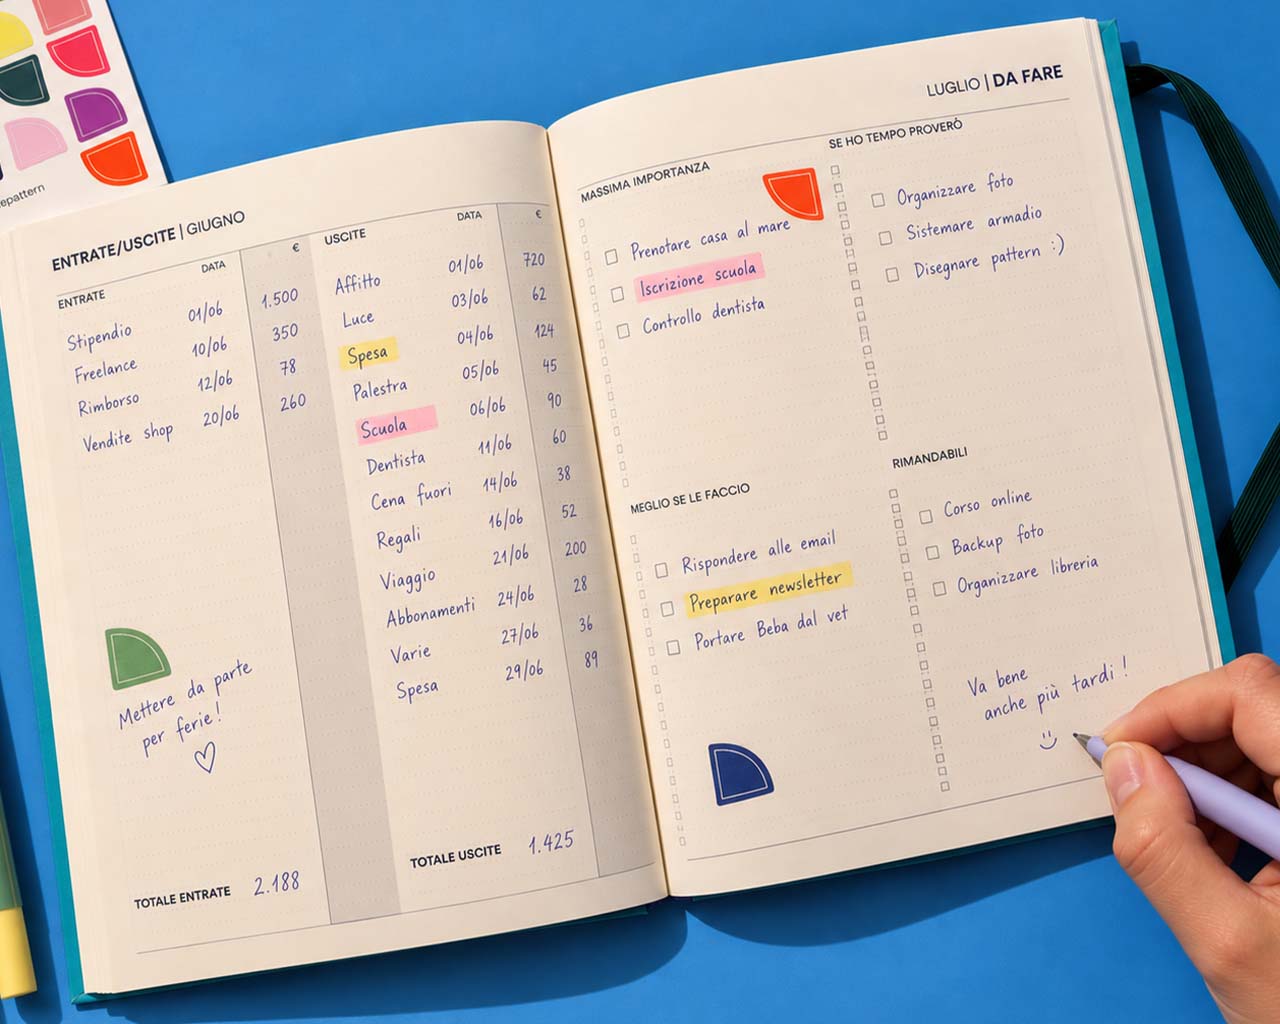 epattern
ENTRATE/USCITE | GIUGNO
ENTRATE DATA €
Stipendio 01/06 1.500
Freelance 10/06 350
Rimborso 12/06 78
Vendite shop 20/06 260
Mettere da parte
per ferie!
TOTALE ENTRATE 2.188
USCITE DATA €
Affitto 01/06 720
Luce 03/06 62
Spesa 04/06 124
Palestra 05/06 45
Scuola 06/06 90
Dentista 11/06 60
Cena fuori 14/06 38
Regali 16/06 52
Viaggio 21/06 200
Abbonamenti 24/06 28
Varie 27/06 36
Spesa 29/06 89
TOTALE USCITE 1.425
LUGLIO | DA FARE
MASSIMA IMPORTANZA
Prenotare casa al mare
Iscrizione scuola
Controllo dentista
SE HO TEMPO PROVERÒ
Organizzare foto
Sistemare armadio
Disegnare pattern :)
MEGLIO SE LE FACCIO
Rispondere alle email
Preparare newsletter
Portare Beba dal vet
RIMANDABILI
Corso online
Backup foto
Organizzare libreria
Va bene
anche più tardi!